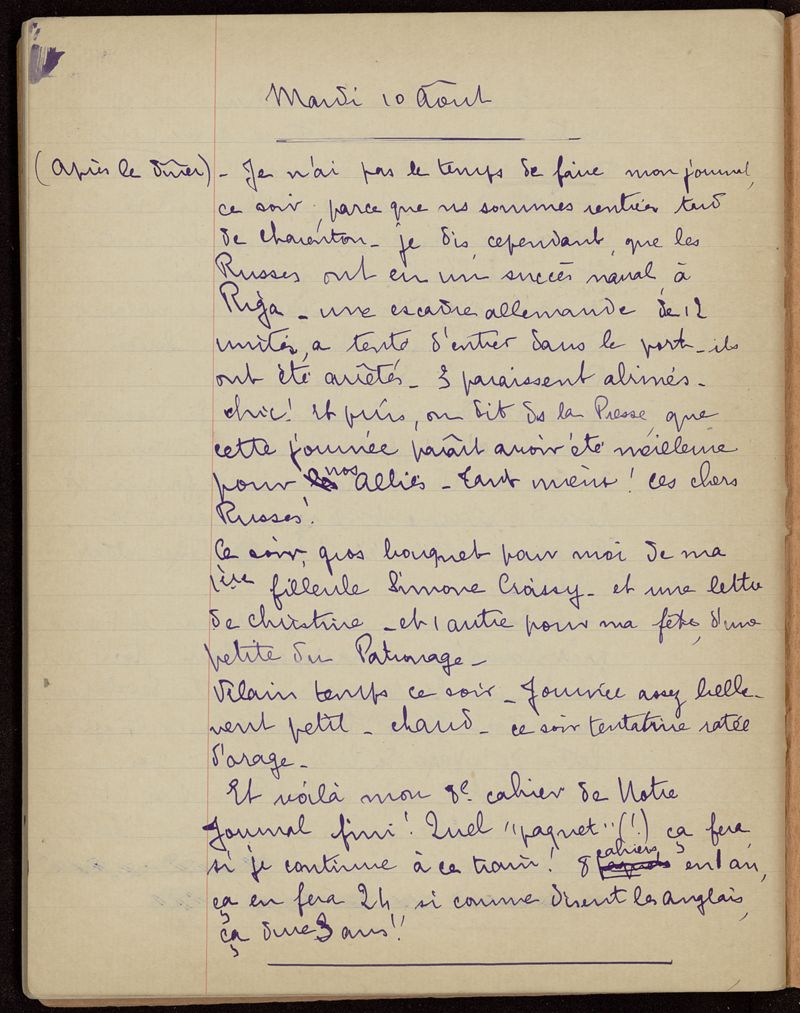 Mardi 10 Août
(Après le dîner) - Je n'ai pas le temps de faire mon journal,
ce soir, parce que ns sommes rentrées tard
de Charenton - je dis, cependant, que les
Russes ont eu un succès naval, à
Riga - une escadre allemande de 12
unités, a tenté d'entrer dans le port - ils
ont été arrêtés - 3 paraissent abimés -
chic! Et puis, on dit ds la Presse, que
cette journée paraît avoir été meilleure
pour les nos Alliés - Tant mieux! Ces chers
Russes!
Ce soir, gros bouquet pour moi de ma
1ère filleule Simone Croissy - et une lettre
de Christine - et 1 autre pour ma fête, d'une
petite du Patronage -
Vilain temps ce soir - Journée assez belle -
vent petit - chaud - ce soir tentative ratée
d'orage -
Et voilà mon 8e cahier de Notre
Journal fini! Quel "paquet" (!) ça fera
si je continue à ce train! 8 cahiers en 1 an,
ça en fera 24 si comme disent les anglais,
ça dure 3 ans!!